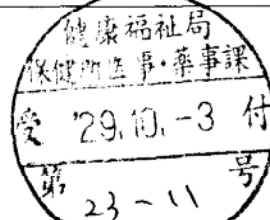 健康福祉局
保健所医事・薬事課
受 '29.10.-3 付
第 号
23-11